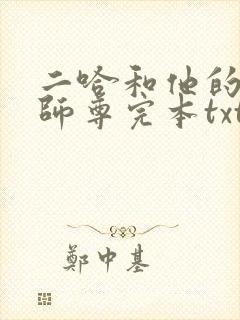 二哈和他的
師尊完本txt
鄭中基